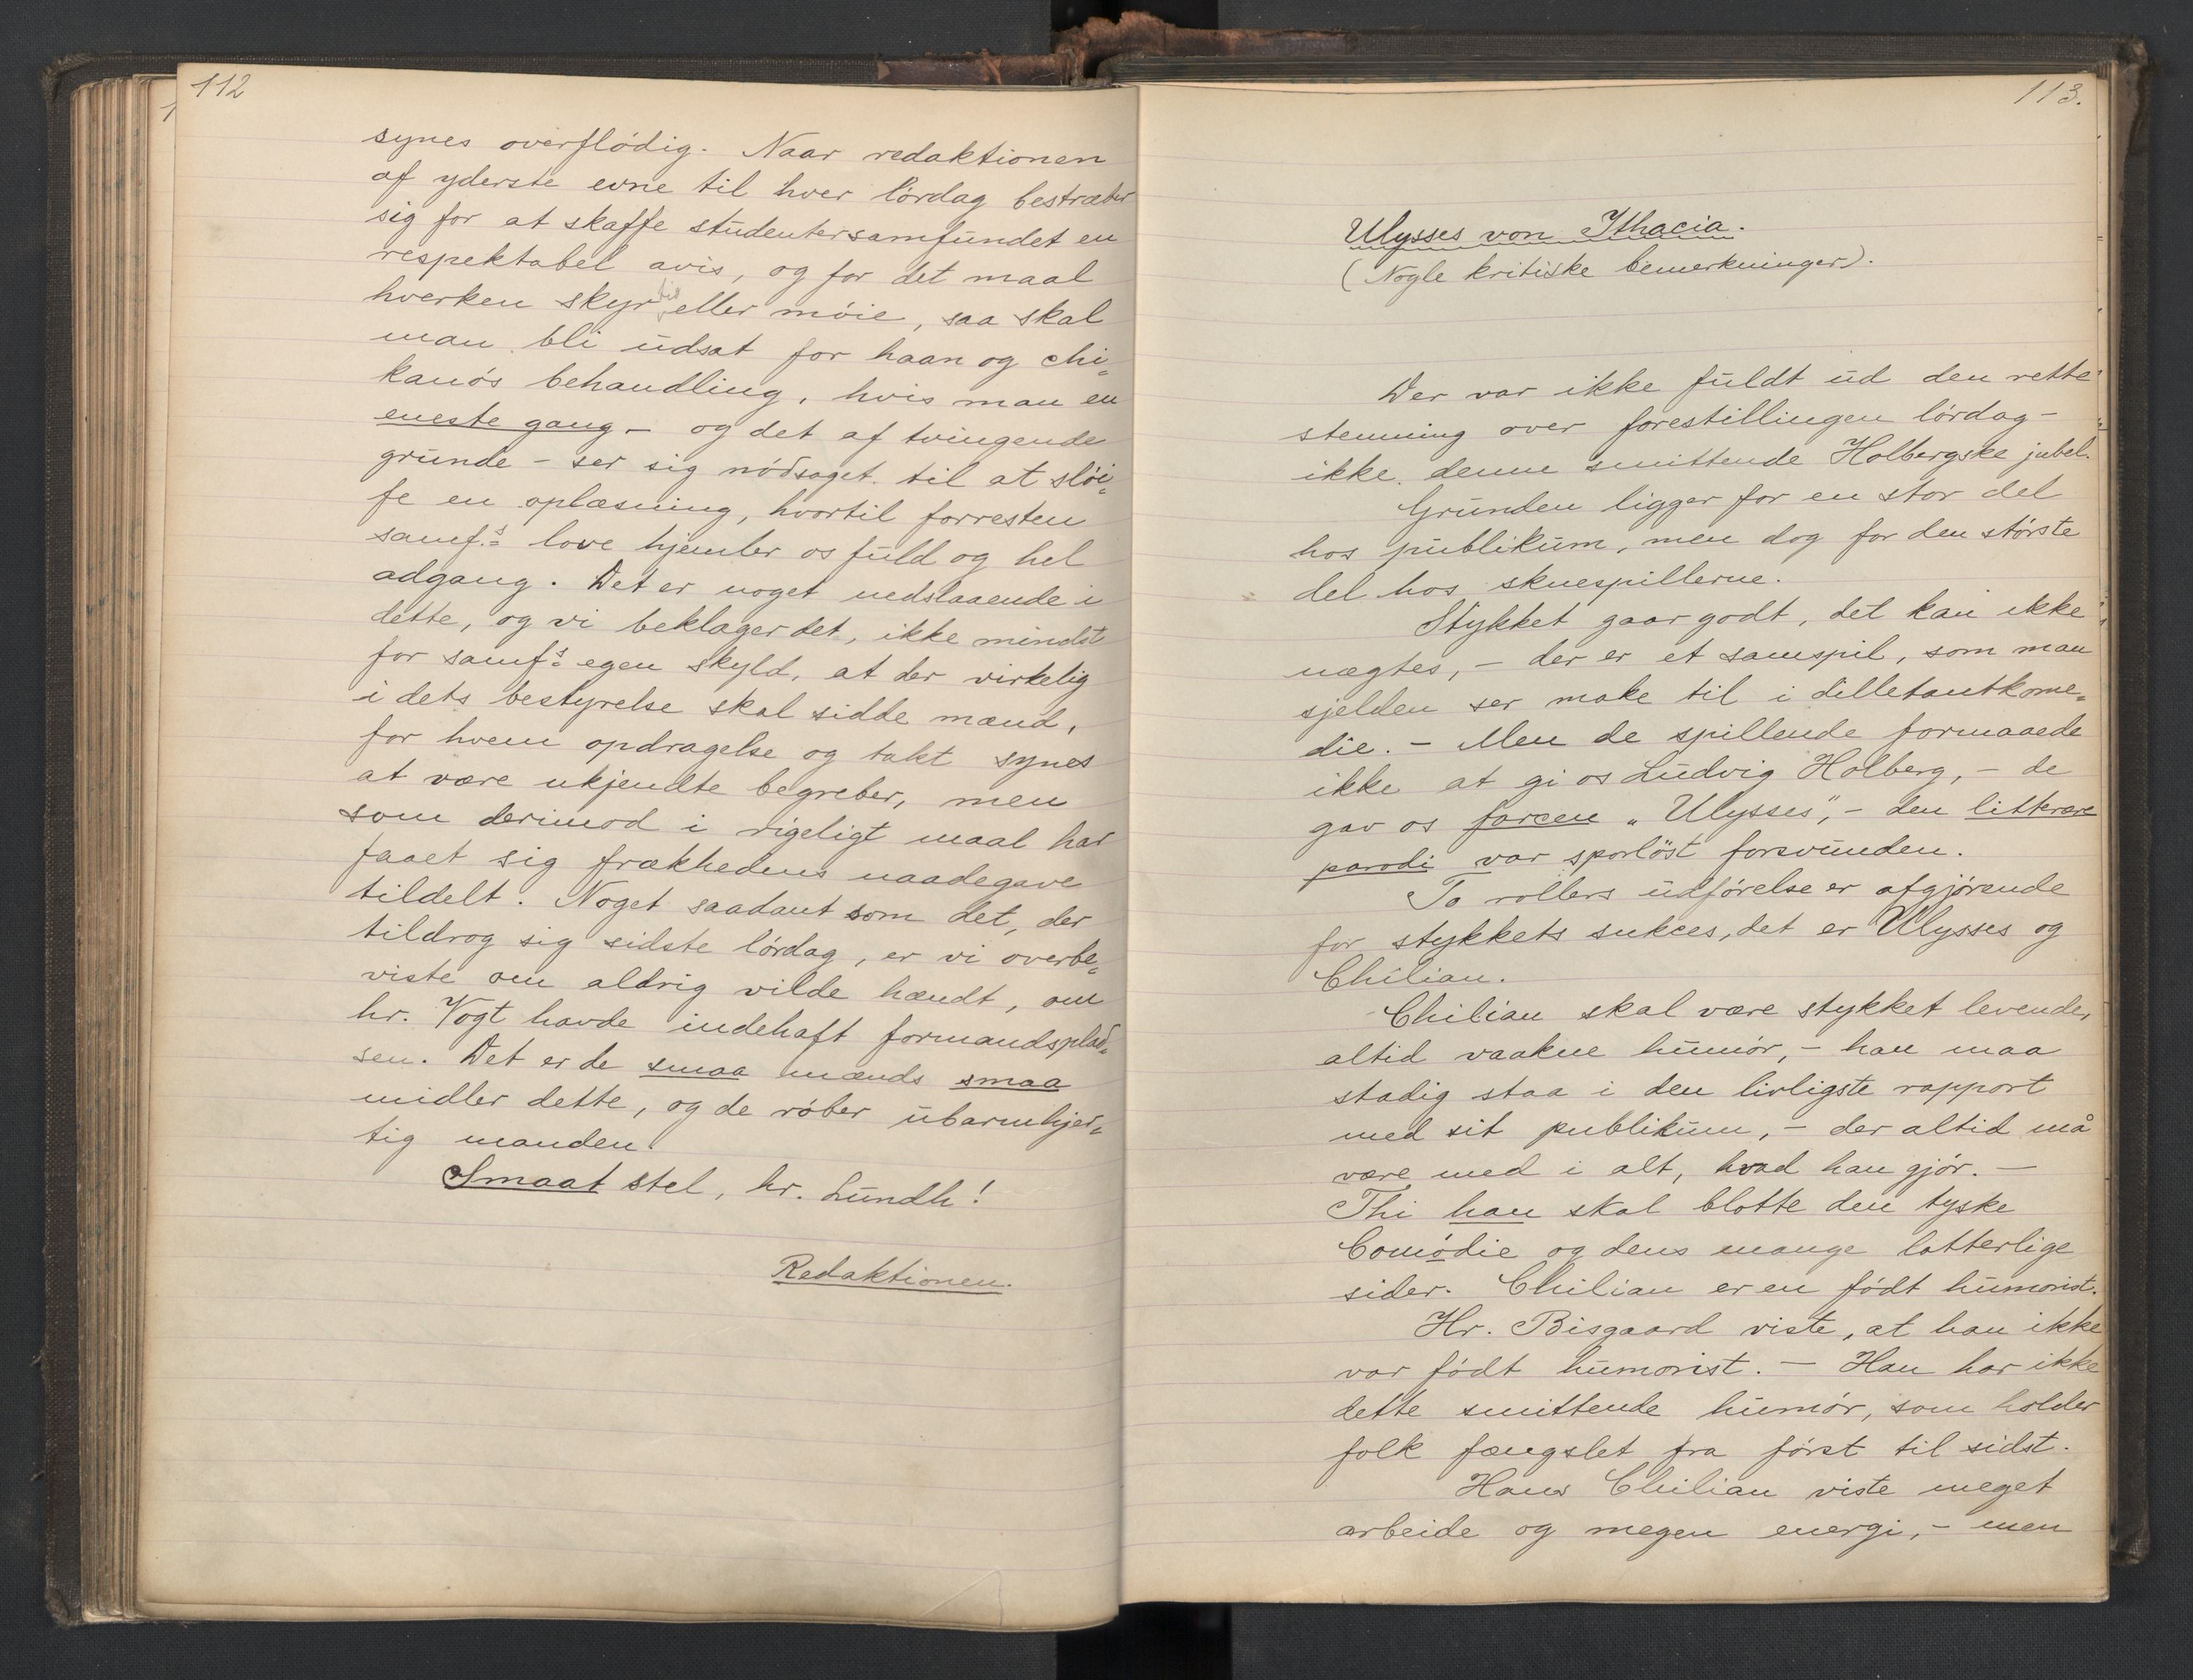 112
synes overflødig. Naar redaktionen
af yderste evne til hver lørdag bestræber
sig for at skaffe studentersamfundet en
respektabel avis, og for det maal
hverken skyr tid eller møie, saa skal
man bli udsat for haan og chi-
kanøs behandling, hvis man en
eneste gang – og det af tvingende
grunde – ser sig nødsaget til at sløi-
fe en oplæsning, hvortil forresten
samf.s love hjemler os fuld og hel
adgang. Det er noget nedslaaende i
dette, og vi beklager det, ikke mindst
for samf.s egen skyld, at der virkelig
i dets bestyrelse skal sidde mænd,
for hvem opdragelse og takt synes
at være ukjendte begreber, men
som derimod i rigeligt maal har
faaet sig frækhedens naadegave
tildelt. Noget saadant som det, der
tildrog sig sidste lørdag, er vi overbe-
viste om aldrig vilde hændt, om
hr. Vogt havde indehaft formandsplad-
sen. Det er de smaa mænds smaa
midler dette, og de røber ubarmhjer-
tig manden.
Smaat stel, hr. Lundh!
Redaktionen.
113.
Ulysses von Ithacia.
(Nogle kritiske bemerkninger).
Der var ikke fuldt ud den rette
stemning over forestillingen lørdag –
ikke denne smittende Holbergske jubel.
Grunden ligger for en stor del
hos publikum, men dog for den største
del hos skuespillerne.
Stykket gaar godt, det kan ikke
nægtes, – der er et samspil, som man
sjelden ser make til i dilletantkome-
die. – Men de spillende formaaede
ikke at gi os Ludvig Holberg, – de
gav os farcen „Ulysses", – den litterære
parodi var sporløst forsvunden.
To rollers udførelse er afgjørende
for stykkets sukces, det er Ulysses og
Chilian.
Chilian skal være stykket levende,
altid vaakne humør, – han maa
stadig staa i den livligste rapport
med sit publikum, – der altid må
være med i alt, hvad han gjør. –
Thi han skal blotte den tyske
Comødie og dens mange latterlige
sider. Chilian er en født humorist.
Hr. Bisgaard viste, at han ikke
var født humorist. – Han har ikke
dette smittende humør, som holder
folk fængslet fra først til sidst.
Hans Chilian viste meget
arbeide og megen energi, – men